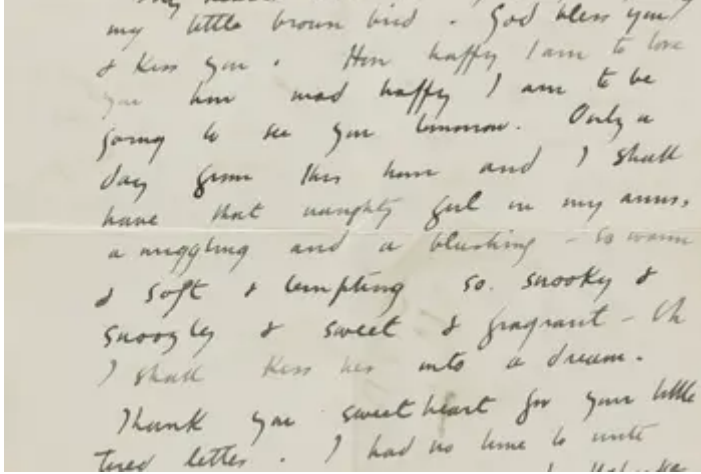 my little brown bird. God bless you
& kiss you. How happy I am to love
you how mad happy I am to be
going to see you tomorrow. Only a
day from this hour and I shall
have that naughty girl in my arms,
a niggling and a blushing - so warm
& soft & tempting so snooky &
snoozly & sweet & fragrant - Oh
I shall kiss her into a dream.
Thank you sweetheart for your little
tired letter. I had no time to write